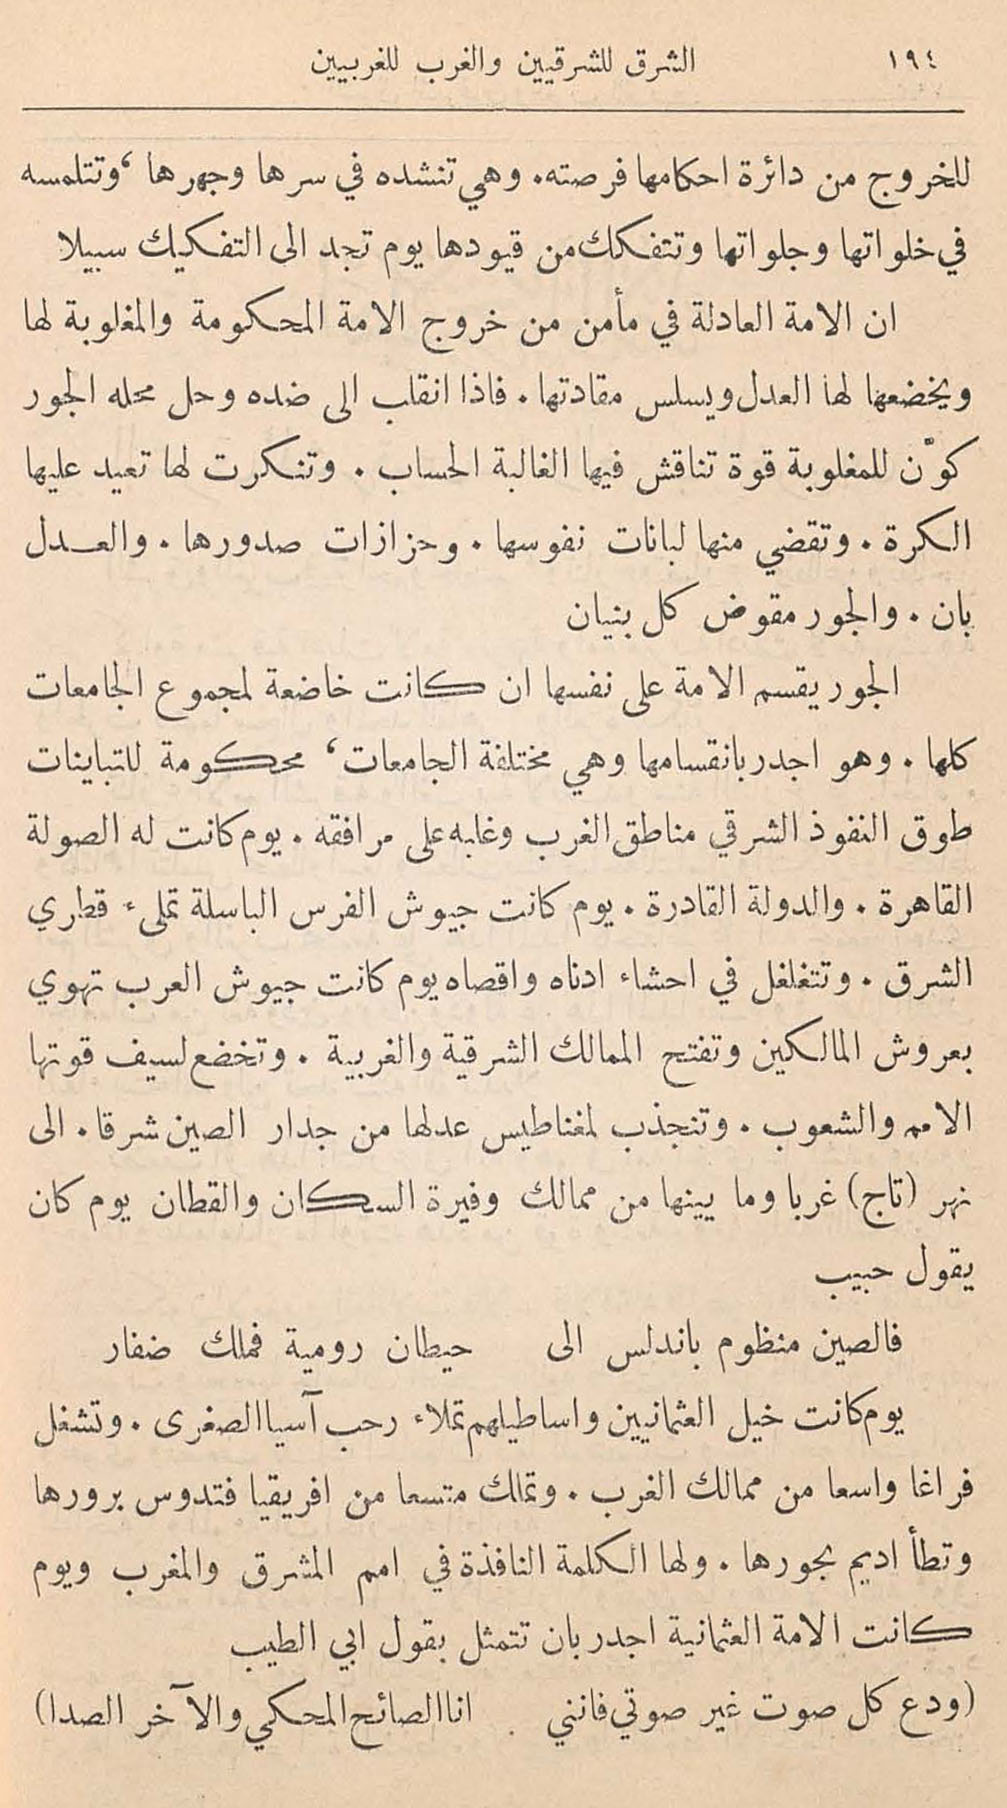 ١٩٤ الشرق للشرقيين والغرب للغربيين
للخروج من دائرة احكامها فرصته. وهي تنشده في سرها وجهرها، وتتلمسه
في خلواتها وجلواتها وتتفكك من قيودها يوم تجد الى التفكيك سبيلا
ان الامة العادلة في مأمن من خروج الامة المحكومة والمغلوبة لها
ويخضعها لها العدل ويسلس مقادتها. فاذا انقلب الى ضده وحل محله الجور
كوّن للمغلوبة قوة تناقش فيها الغالبة الحساب. وتنكرت لها تعيد عليها
الكرة. وتقضي منها لبانات نفوسها. وحزازات صدورها. والعـدل
بان. والجور مقوض كل بنيان
الجور يقسم الامة على نفسها ان كانت خاضعة لمجموع الجامعات
كلها. وهو اجدر بانقسامها وهي مختلفة الجامعات، محكومة للتباينات
طوق النفوذ الشرقي مناطق الغرب وغلبه على مرافقه. يوم كانت له الصولة
القاهرة. والدولة القادرة. يوم كانت جيوش الفرس الباسلة تملىء قطري
الشرق. وتتغلغل في احشاء ادناه واقصاه يوم كانت جيوش العرب تهوي
بعروش المالكين وتفتح الممالك الشرقية والغربية. وتخضع لسيف قوتها
الامم والشعوب. وتنجذب لمغناطيس عدلها من جدار الصين شرقا. الى
نهر (تاج) غربا وما بينها من ممالك وفيرة السكان والقطان يوم كان
يقول حبيب
فالصين منظوم باندلس الى حيطان رومية فملك ضفار
يوم كانت خيل العثمانيين واساطيلهم تملاء رحب آسيا الصغرى. وتشغل
فراغا واسعا من ممالك الغرب. وتملك متسعا من افريقيا فتدوس برورها
وتطأ اديم بحورها. ولها الكلمة النافذة في امم المشرق والمغرب ويوم
كانت الامة العثمانية اجدر بان تتمثل بقول ابي الطيب
(ودع كل صوت غير صوتي فانني انا الصائح المحكي والآخر الصدا)